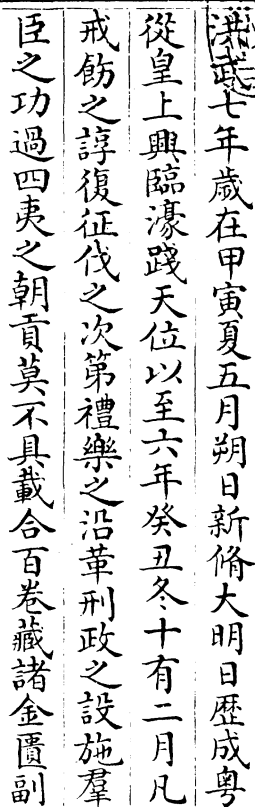 洪武七年歲在甲寅夏五月朔日新脩大明日歷成粤
從皇上興臨濠踐天位以至六年癸丑冬十有二月凡
戒飭之諄復征伐之次第禮樂之沿革刑政之設施羣
臣之功過四夷之朝貢莫不具載合百卷藏諸金匱副